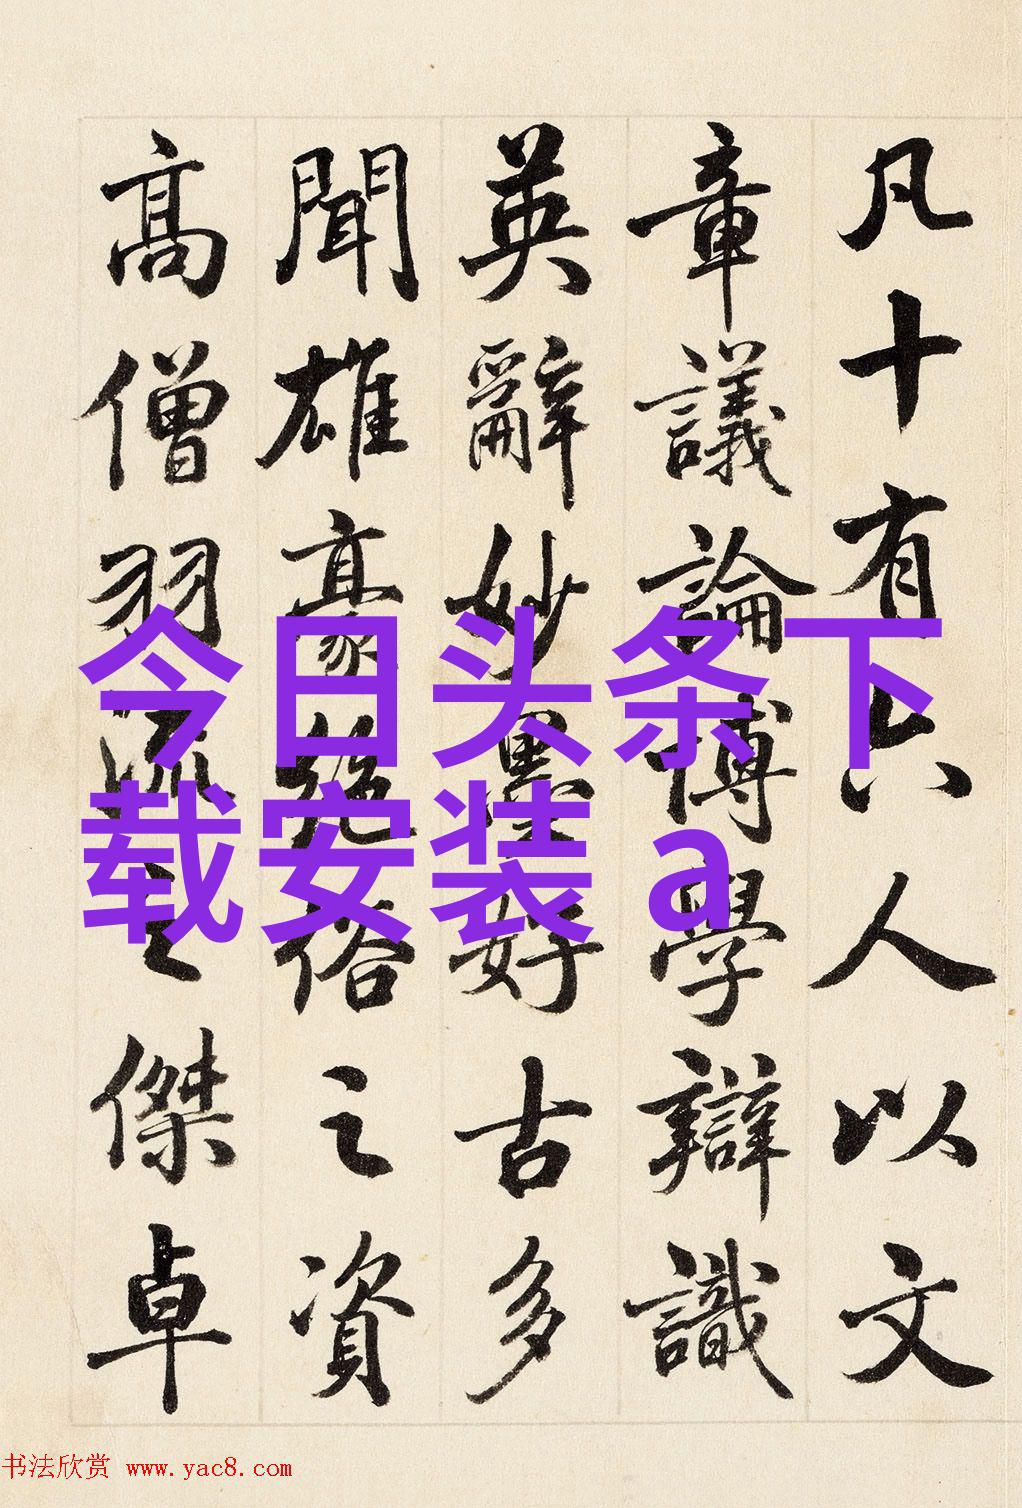 凡十有六人以文
章議論博學辯識
英辭妙墨好古多
聞雄豪絶俗之資
高僧羽流之傑卓
今日头条下
载安装 a
书法欣赏 www.yac8.com